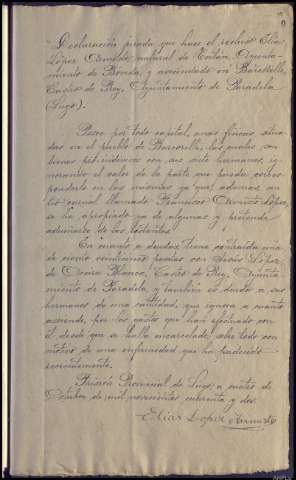 "Declaración jurada que hace el recluso Elías
López Armesto natural de Ayunta-
miento de y avecindado en Barcorelle,
Castro de Rey, Ayuntamiento de Paradela
(Lugo).
Posee por todo capital, unas fincas situa-
das en el pueblo de Barcorelle, las cuales son
bienes proindivisos con sus siete hermanos, ig-
norando el valor de la parte que pueda corres-
ponderle en las mismas ya que, además, un
tío carnal llamado Francisco Armesto López,
se ha apropiado ya de algunas y pretende
adueñarse de las restantes.
En cuanto a deudas, tiene contraída una
de ciento veinticinco pesetas con Jesús López
de Blanca, Castro de Rey, Ayunta-
miento de Paradela, y también es deudor a sus
hermanos de una cantidad, que ignora a cuánto
asciende, por los gastos que han efectuado con
él desde que se halla encarcelado, sobre todo con
motivo de una enfermedad que ha padecido
recientemente.
Prisión Provincial de Lugo, a cuatro de
Octubre de mil novecientos cuarenta y dos.
Elías López Armesto